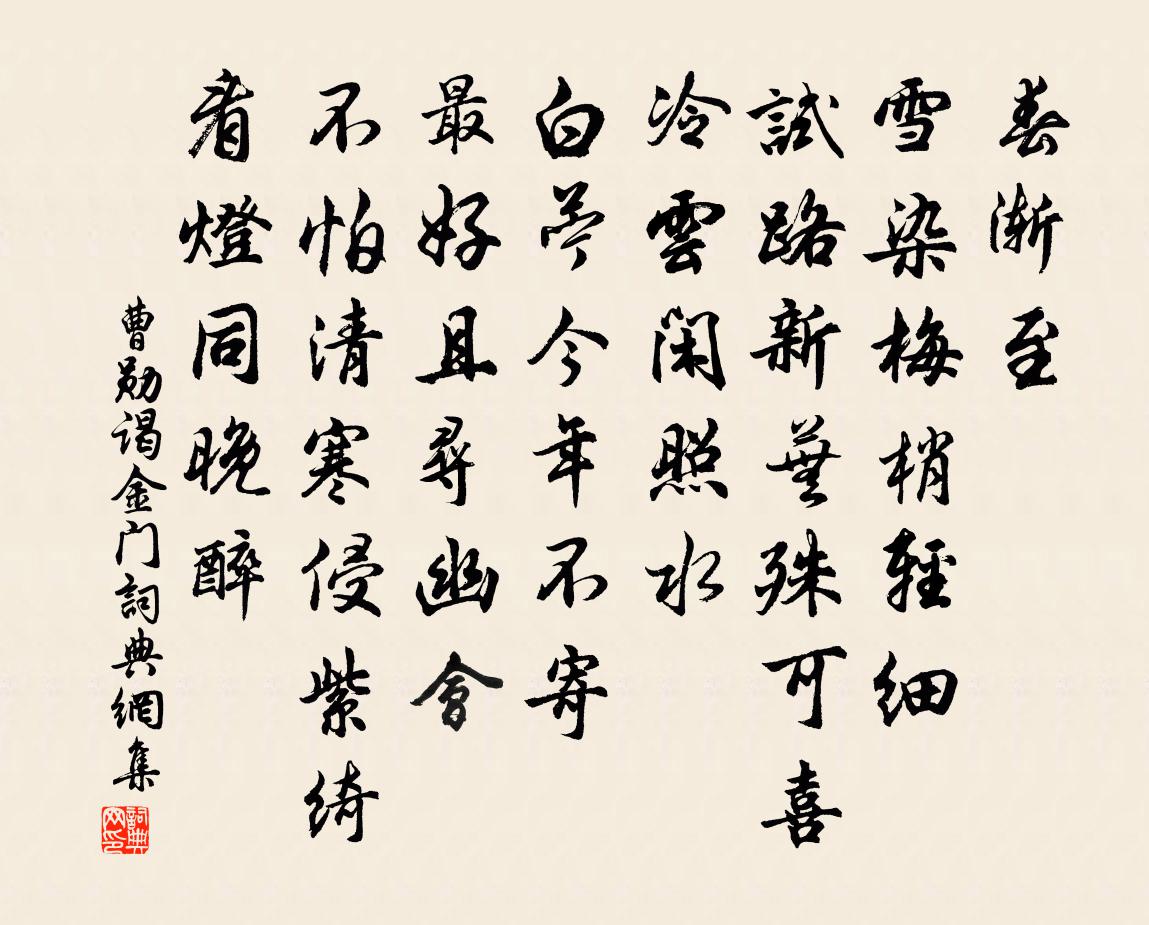 春漸至
雪染梅梢輕細
試路新蕪殊可喜
冷雲閑照水
白苧今年不寄
最好且尋幽會
不怕清寒侵紫綺
看燈同晚醉
曹勛謁金门詞典網集
詞典网印